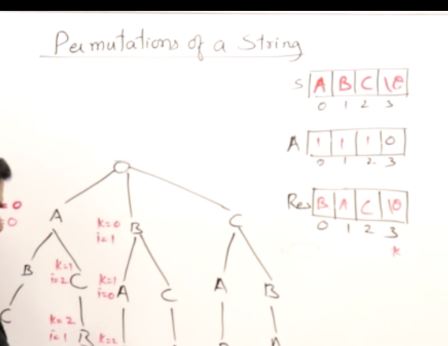 Permutations of a String
S A B C \0
0 1 2 3
A 1 1 1 0
0 1 2 3
Res B A C \0
0 1 2 3
k
A B C
k=0
i=1
B C A C A B
k=1
i=2
k=1
i=0
C B
k=2
i=1
k=2